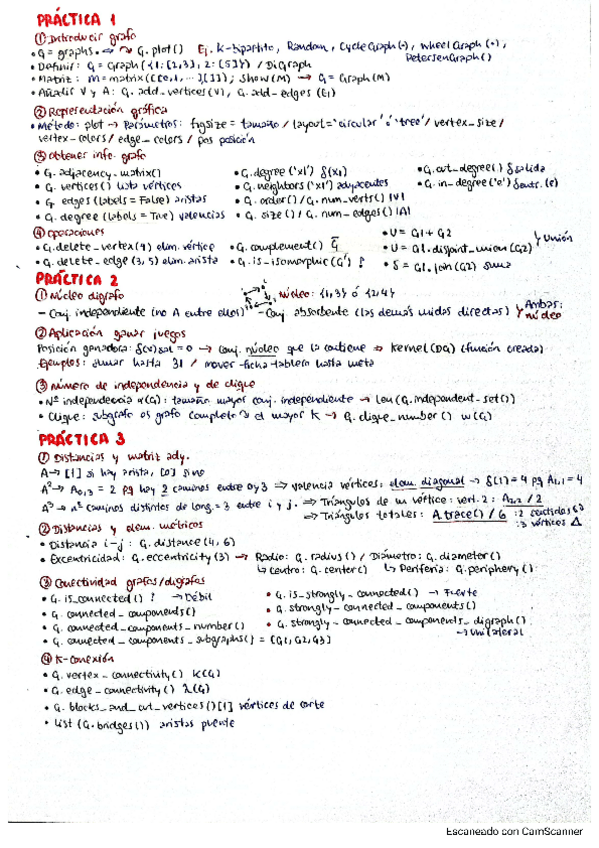 PRÁCTICA 1
① Introducir grafo
• G = graphs. G.plot() Ej. K-bipartito, Random, CycleGraph(·), WheelGraph(·), PetersenGraph()
• Definir: G = Graph({1:[2,3], 2:[5]}) / DiGraph
• Matriz: M = matrix([[0,1, ...]]); show(M) → G = Graph(M)
• Añadir V y A: G.add_vertices(V), G.add_edges(E1)
② Representación gráfica
• Método: plot → Parámetros: figsize = tamaño / layout = 'circular' ó 'tree' / vertex_size /
vertex_colors / edge_colors / pos posición
③ Obtener info. grafo
• G.adjacency_matrix() • G.degree('x1') δ(x1) • G.out_degree() δsalida
• G.vertices() lista vértices • G.neighbors('x1') adyacentes • G.in_degree('e') δentr.(e)
• G.edges(labels=False) aristas • G.order() / G.num_verts() |V|
• G.degree(labels=True) valencias • G.size() / G.num_edges() |A|
④ Operaciones • U = G1 + G2
• G.delete_vertex(9) elim. vértice • G.complement() G̅ • U = G1.disjoint_union(G2) Unión
• G.delete_edge(3,5) elim. arista • G.is_isomorphic(G') ? • S = G1.join(G2) suma
PRÁCTICA 2
① Núcleo digrafo Núcleo: {1,3} ó {2,4}
- Conj. independiente (no A entre ellos) - Conj. absorbente (las demás unidas directas) Ambas: núcleo
② Aplicación ganar juegos
Posición ganadora: δ(v)sal = 0 → conj. núcleo que la contiene → Kernel(DG) (función creada)
Ejemplos: sumar hasta 31 / mover-ficha-tablero hasta meta
③ Número de independencia y de clique
• Nº independencia α(G): tamaño mayor conj. independiente → len(G.independent_set())
• Clique: subgrafo es grafo completo el mayor K → G.clique_number() w(G)
PRÁCTICA 3
① Distancias y matriz ady.
A → [1] si hay arista, [0] si no
A² → A0,3 = 2 pq hay 2 caminos entre 0 y 3 ⇒ valencia vértices: elem. diagonal → δ(1) = 4 pq A1,1 = 4
A³ → nº caminos distintos de long. = 3 entre i y j. ⇒ Triángulos de un vértice: vert. 2: A2,2 / 2
⇒ Triángulos totales: A.trace() / 6 :2 sentidos
:3 vértices Δ
② Distancias y elem. métricos
• Distancia i-j: G.distance(4,6)
• Excentricidad: G.eccentricity(3) → Radio: G.radius() / Diámetro: G.diameter()
↳ Centro: G.center() ↳ Periferia: G.periphery()
③ Conectividad grafos/digrafos
• G.is_connected() ? → Débil • G.is_strongly_connected() → Fuerte
• G.connected_components() • G.strongly_connected_components()
• G.connected_components_number() • G.strongly_connected_components_digraph()
• G.connected_components_subgraphs() = [G1, G2, G3] → Unilateral
④ K-conexión
• G.vertex_connectivity() K(G)
• G.edge_connectivity() λ(G)
• G.blocks_and_cut_vertices()[1] vértices de corte
• list(G.bridges()) aristas puente
Escaneado con CamScanner